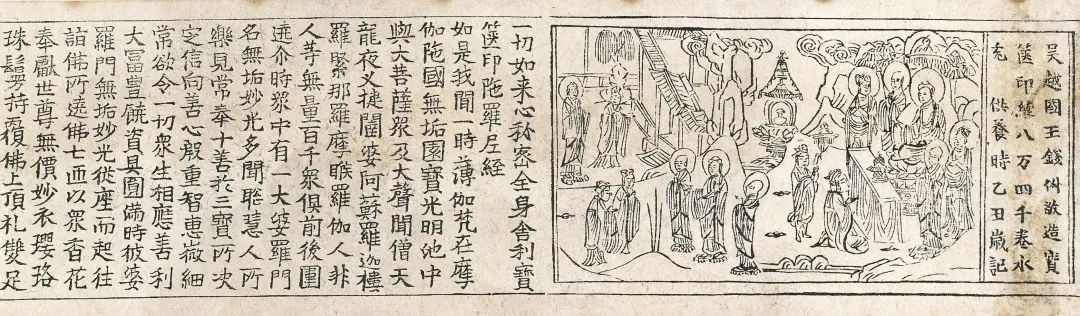 吴越國王錢俶敬造寶
篋印經八万四千卷永
充供養時乙丑歲記
一切如来心秘密全身舍利寶
篋印陁羅尼經
如是我聞一時薄伽梵在摩
伽陁國無垢園寶光明池中
與大菩薩衆及大聲聞僧天
龍夜叉揵闥婆阿蘇羅迦樓
羅緊那羅摩睺羅伽人非
人等無量百千衆俱前後圍
遶尒時衆中有一大婆羅門
名無垢妙光多聞聡慧人所
樂見常奉十善於三寶所决
定信向善心殷重智恵微細
常欲令一切衆生相應善利
大冨豊饒資具圓滿時彼婆
羅門無垢妙光從座而起往
詣佛所遶佛七迊以衆香花
奉獻世尊無價妙衣瓔珞
珠鬘等持覆佛上頂礼雙足